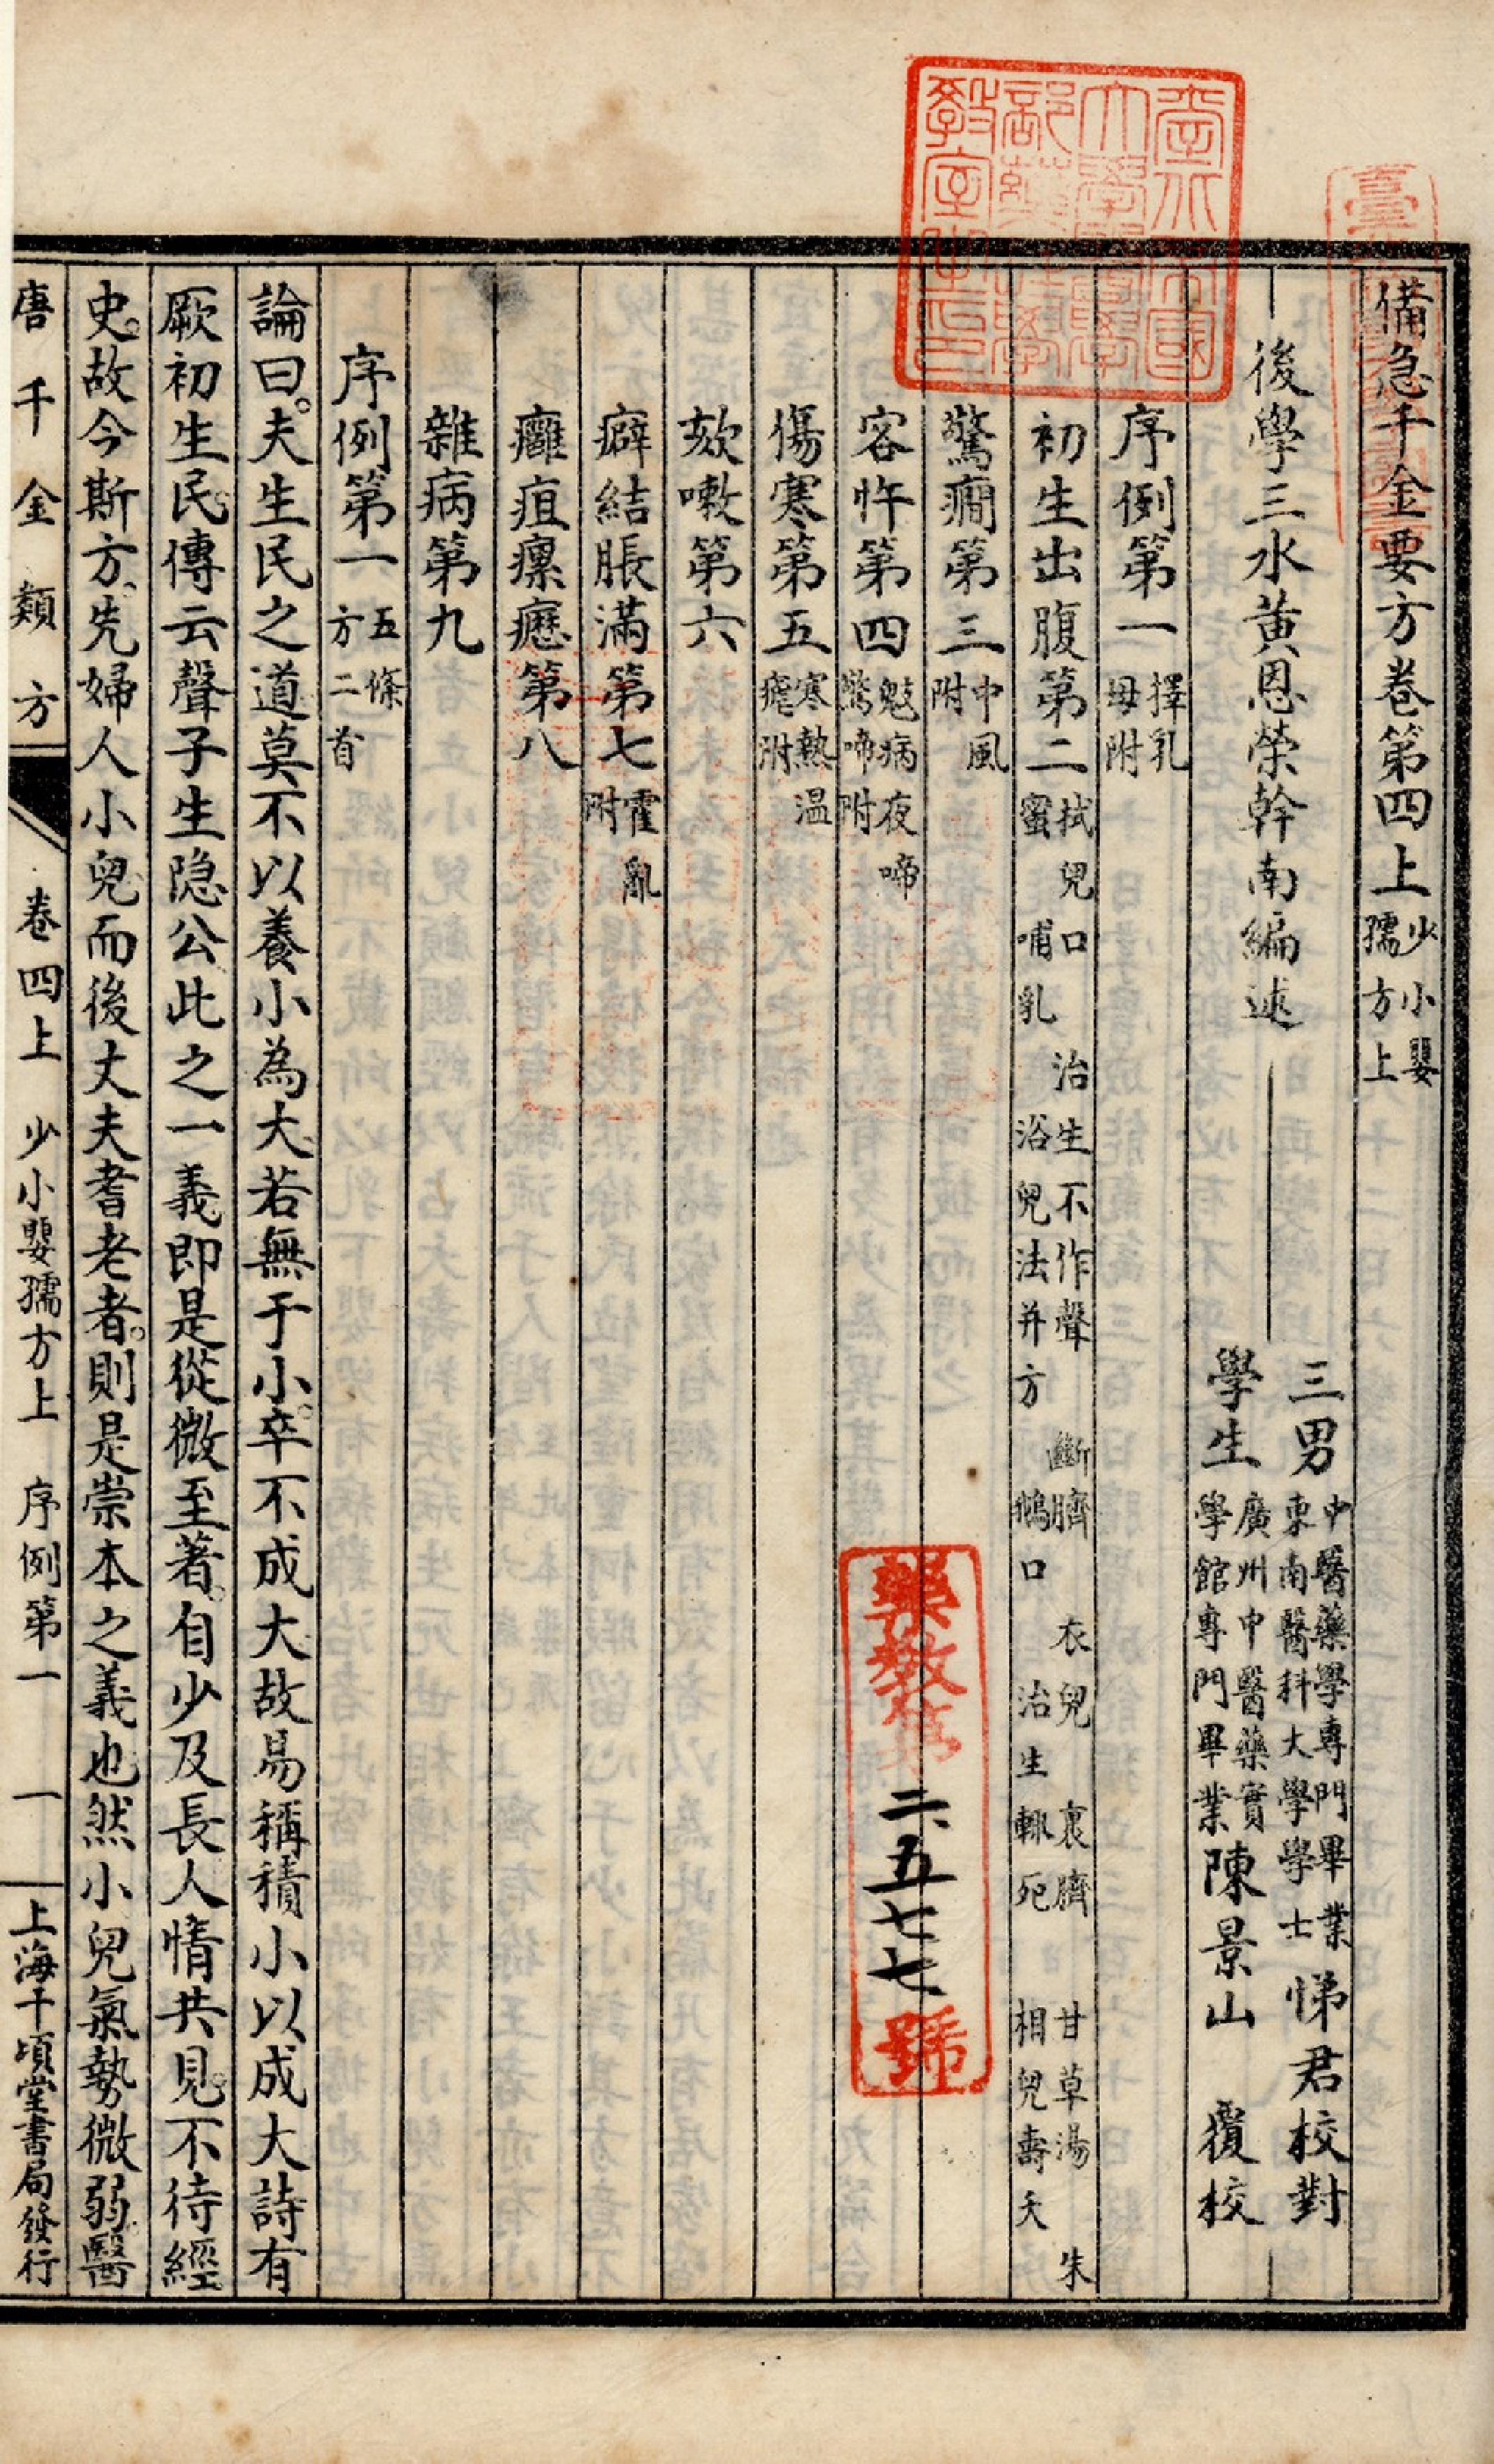 備急千金要方卷第四上 少小嬰孺方上
後學三水黃恩榮幹南編述
三男 中醫藥學專門畢業東南醫科大學學士 悌君校對
學生 廣州中醫藥實學館專門畢業 陳景山 覆校
序例第一 擇乳母附
初生出腹第二 拭兒口 治生不作聲 斷臍 衣兒 裹臍 甘草湯 朱蜜 哺乳 浴兒法并方 鵝口 治生輙死 相兒壽夭
驚癇第三 中風附
客忤第四 鬾病夜啼驚啼附
傷寒第五 寒熱温瘧附
欬嗽第六
癖結脹滿第七 霍亂附
癰疽瘰癧第八
雜病第九
序例第一 五條方二首
論曰。夫生民之道莫不以養小為大若無于小。卒不成大故易稱積小以成大詩有
厥初生民傳云聲子生隐公此之一義即是從微至著。自少及長人情共見不待經
史。故今斯方。先婦人小兒而後丈夫耆老者。則是崇本之義也然小兒氣勢微弱醫
唐千金類方 卷四上 少小嬰孺方上 序例第一 一 上海千頃堂書局發行
臺北帝國大學醫學部藥理學教室之印
藥教第二五七七號